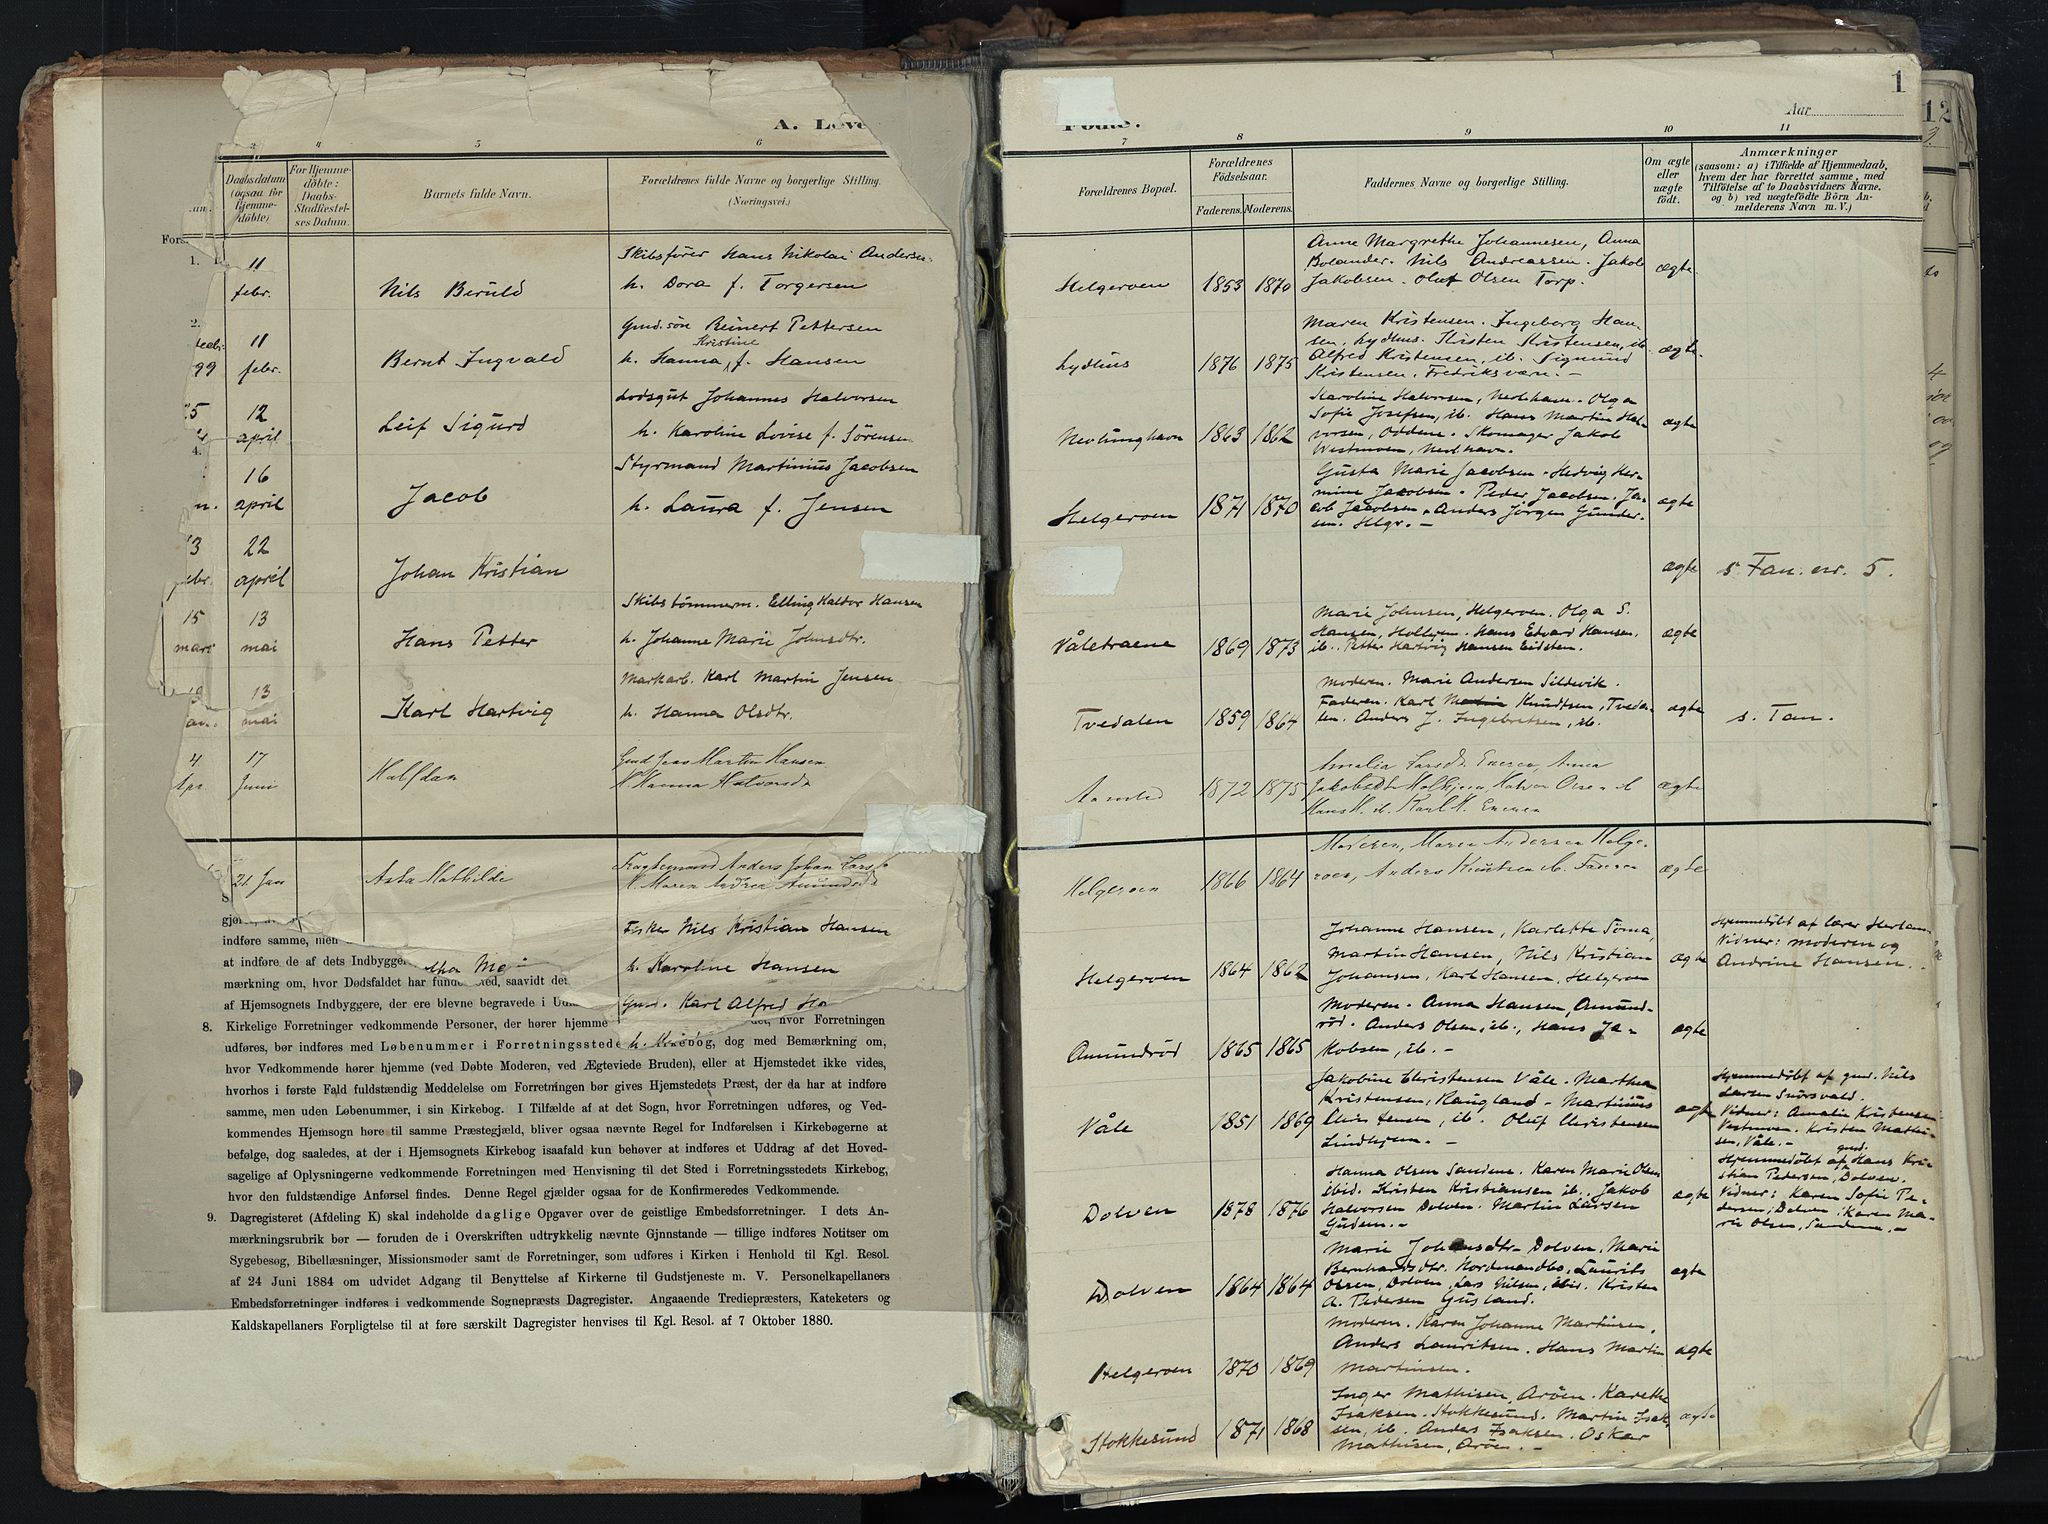 A. Leve
3
4
5
6
Daabsdatum
(ogsaa for
Hjemme-
døbte)
For Hjemme-
døbte:
Daabs-
Stadfæstel-
ses Datum.
Barnets fulde Navn.
Forældrenes fulde Navne og borgerlige Stilling.
(Næringsvei.)
1.
11
febr.
Nils Berüld
Skibsfører Hans Nikolai Andersen.
h. Dora f. Torgersen
2.
99
11
febr.
Bernt Ingvald
Gmd.søn Reinert Pettersen
Kristine
h. Hanna, f. Hansen
5
12
april
Leif Sigurd
Lodsgut Johannes Halvorsen
h. Karoline Lovise f. Sörensen
4.
16
april
Jacob
Styrmand Martinius Jacobsen
h. Laura f. Jensen
22
april
Johan Kristian
15
mars
13
mai
Hans Petter
Skibstömmerm. Elling Kaldor Hansen
h. Johanne Marie Johnsdtr.
13
mai
Karl Hartvig
Markarb. Karl Martin Jensen
h. Hanna Olsdtr.
4
Apr
17
Juni
Halfdan
Gmd Jens Martin Hansen
H. Hanna Halvorsd
21 Jan
Asta Mathilde
Fragtemand Anders Johan Lars
H. Maren Andrea Amundsd
Fisker Nils Kristian Hansen
h. Karoline Hansen
Gmd. Karl Alfred Ha
indføre samme, men
at indføre de af dets Indbygger
mærkning om, hvor Dødsfaldet har funde
ed, saavidt det
af Hjemsognets Indbyggere, der ere blevne begravede i Ud
8. Kirkelige Forretninger vedkommende Personer, der hører hjemme
et, hvor Forretningen
udføres, bør indføres med Løbenummer i Forretningsstede
Kirkebog, dog med Bemærkning om,
hvor Vedkommende hører hjemme (ved Døbte Moderen, ved Ægteviede Bruden), eller at Hjemstedet ikke vides,
hvorhos i første Fald fuldstændig Meddelelse om Forretningen bør gives Hjemstedets Præst, der da har at indføre
samme, men uden Løbenummer, i sin Kirkebog. I Tilfælde af at det Sogn, hvor Forretningen udføres, og Ved-
kommendes Hjemsogn høre til samme Præstegjæld, bliver ogsaa nævnte Regel for Indførelsen i Kirkebøgerne at
befølge, dog saaledes, at der i Hjemsognets Kirkebog isaafald kun behøver at indføres et Uddrag af det Hoved-
sagelige af Oplysningerne vedkommende Forretningen med Henvisning til det Sted i Forretningsstedets Kirkebog,
hvor den fuldstændige Anførsel findes. Denne Regel gjælder ogsaa for de Konfirmeredes Vedkommende.
9. Dagregisteret (Afdeling K) skal indeholde daglige Opgaver over de geistlige Embedsforretninger. I dets An-
mærkningsrubrik bør — foruden de i Overskriften udtrykkelig nævnte Gjnnstande — tillige indføres Notitser om
Sygebesøg, Bibellæsninger, Missionsmøder samt de Forretninger, som udføres i Kirken i Henhold til Kgl. Resol.
af 24 Juni 1884 om udvidet Adgang til Benyttelse af Kirkerne til Gudstjeneste m. V. Personelkapellaners
Embedsforretninger indføres i vedkommende Sognepræsts Dagregister. Angaaende Trediepræsters, Kateketers og
Kaldskapellaners Forpligtelse til at føre særskilt Dagregister henvises til Kgl. Resol. af 7 Oktober 1880.
Fødte.
1
Aar
7
8
9
10
11
Forældrenes Bopæl.
Forældrenes
Fødselsaar.
Faderens. Moderens.
Faddernes Navne og borgerlige Stilling.
Om ægte
eller
uægte
født.
Anmærkninger
(saasom: a) i Tilfælde af Hjemmedaab,
hvem der har forrettet samme, med
Tilføielse af to Daabsvidners Navne,
og b) ved uægtefødte Børn An-
melderens Navn m. V.)
Helgeroen 1853 1870
Anne Margrethe Johannesen, Anna
Bolander. Nils Andreassen. Jakob
Jakobsen. Oluf Olsen Torp.
ægte
Lydhus 1876 1875
Maren Kristensen. Ingeborg Han-
sen, Lydhus. Kristen Kristensen, ib.
Alfred Kristensen, ib. Sigmund
Kristensen. Fredriksværn. –
ægte
Nevlunghavn 1863 1862
Karoline Halvorsen, Nevlhavn. Olga
Sofie Josefsen, ib. Hans Martin Hal-
vorsen, Oddene. Skomager Jakob
Westnoven, Nevlhavn.
ægte
Helgeroen 1871 1870
Gusta Marie Jacobsen. Hedvig Her-
mine Jacobsen. Peder Jacobsen. Ja-
cob Jacobsen. Anders Jörgen Gunder-
sen. Helgr. –
ægte
ægte
s. Tan. nr. 5.
Våletraene 1869 1873
Marie Johnsen, Helgeroen. Olga S.
Hansen, Holhjem. Hans Edvard Hansen,
ib. Petter Hartvig Hansen Eidsten.
ægte
Tvedalen 1859 1864
Moderen. Marie Andersen Sildevik.
Faderen. Karl Martin Knudtsen, Tveda-
len. Anders J. Ingebretsen, ib.
ægte
s. Tan.
1872 1875
ægte
Helgeroen 1866 1864
Moderen, Maren Andersen Helge-
roen, Anders Knutsen ib. Faderen
ægte
Helgeroen 1864 1862
Johanne Hansen, Karlette Toma,
Martin Hansen, Nils Kristian
Johansen, Karl Hansen, Helgeroen
ægte
Hjemmedöbt af lærer Herlan-
Vidner: moderen og
Andrine Hansen.
Amundröd 1865 1865
Moderen. Anna Hansen, Amund-
röd. Anders Olsen, ib., Hans Ja-
kobsen, ib. –
ægte
Våle 1851 1869
Jakobine Christensen Våle. Marthea
Kristensen, Raugland – Martinius
Christensen, ib. Oluf Christensen
Lindhjem. –
ægte
Hjemmedöbt af gmd. Nils
Larsen Snörsvald.
Vidner: Amalie Kristensen
Vestnoven. Kristen Mathi-
sen, Våle. –
Dolven 1878 1876
Hanna Olsen Sandene. Karen Marie Olsen
ibid. Kristen Kristiansen ib. Jakob
Halvorsen Dolven. Martin Larsen
Gudem. –
ægte
gmd.
Hjemmedöbt af Hans Kri-
stian Petersen, Dolven.
Vidner: Karen Sofie Pe-
dersen, Dolven; Karen Ma-
rie Olsen, Sandene. –
Dolven 1864 1864
Marie Johansdtr. Dolven. Marie
Bernhardsdtr. Nordmandbo, Laurits
Olsen, Dolven, Lars Nilsen, ibid. Kristen
A. Pedersen Gusland.
ægte
Helgeroen 1870 1869
Moderen. Karen Johanne Martinsen,
Anders Lauritsen. Hans Martin
Martinsen.
ægte
Stokkesund 1871 1868
Inger Mathisen, Aröen. Karethe
Isaksen. Stokkesund. Martin Isak-
sen, ib. Anders Isaksen. Oskar
Mathisen, Aröen. –
ægte
12